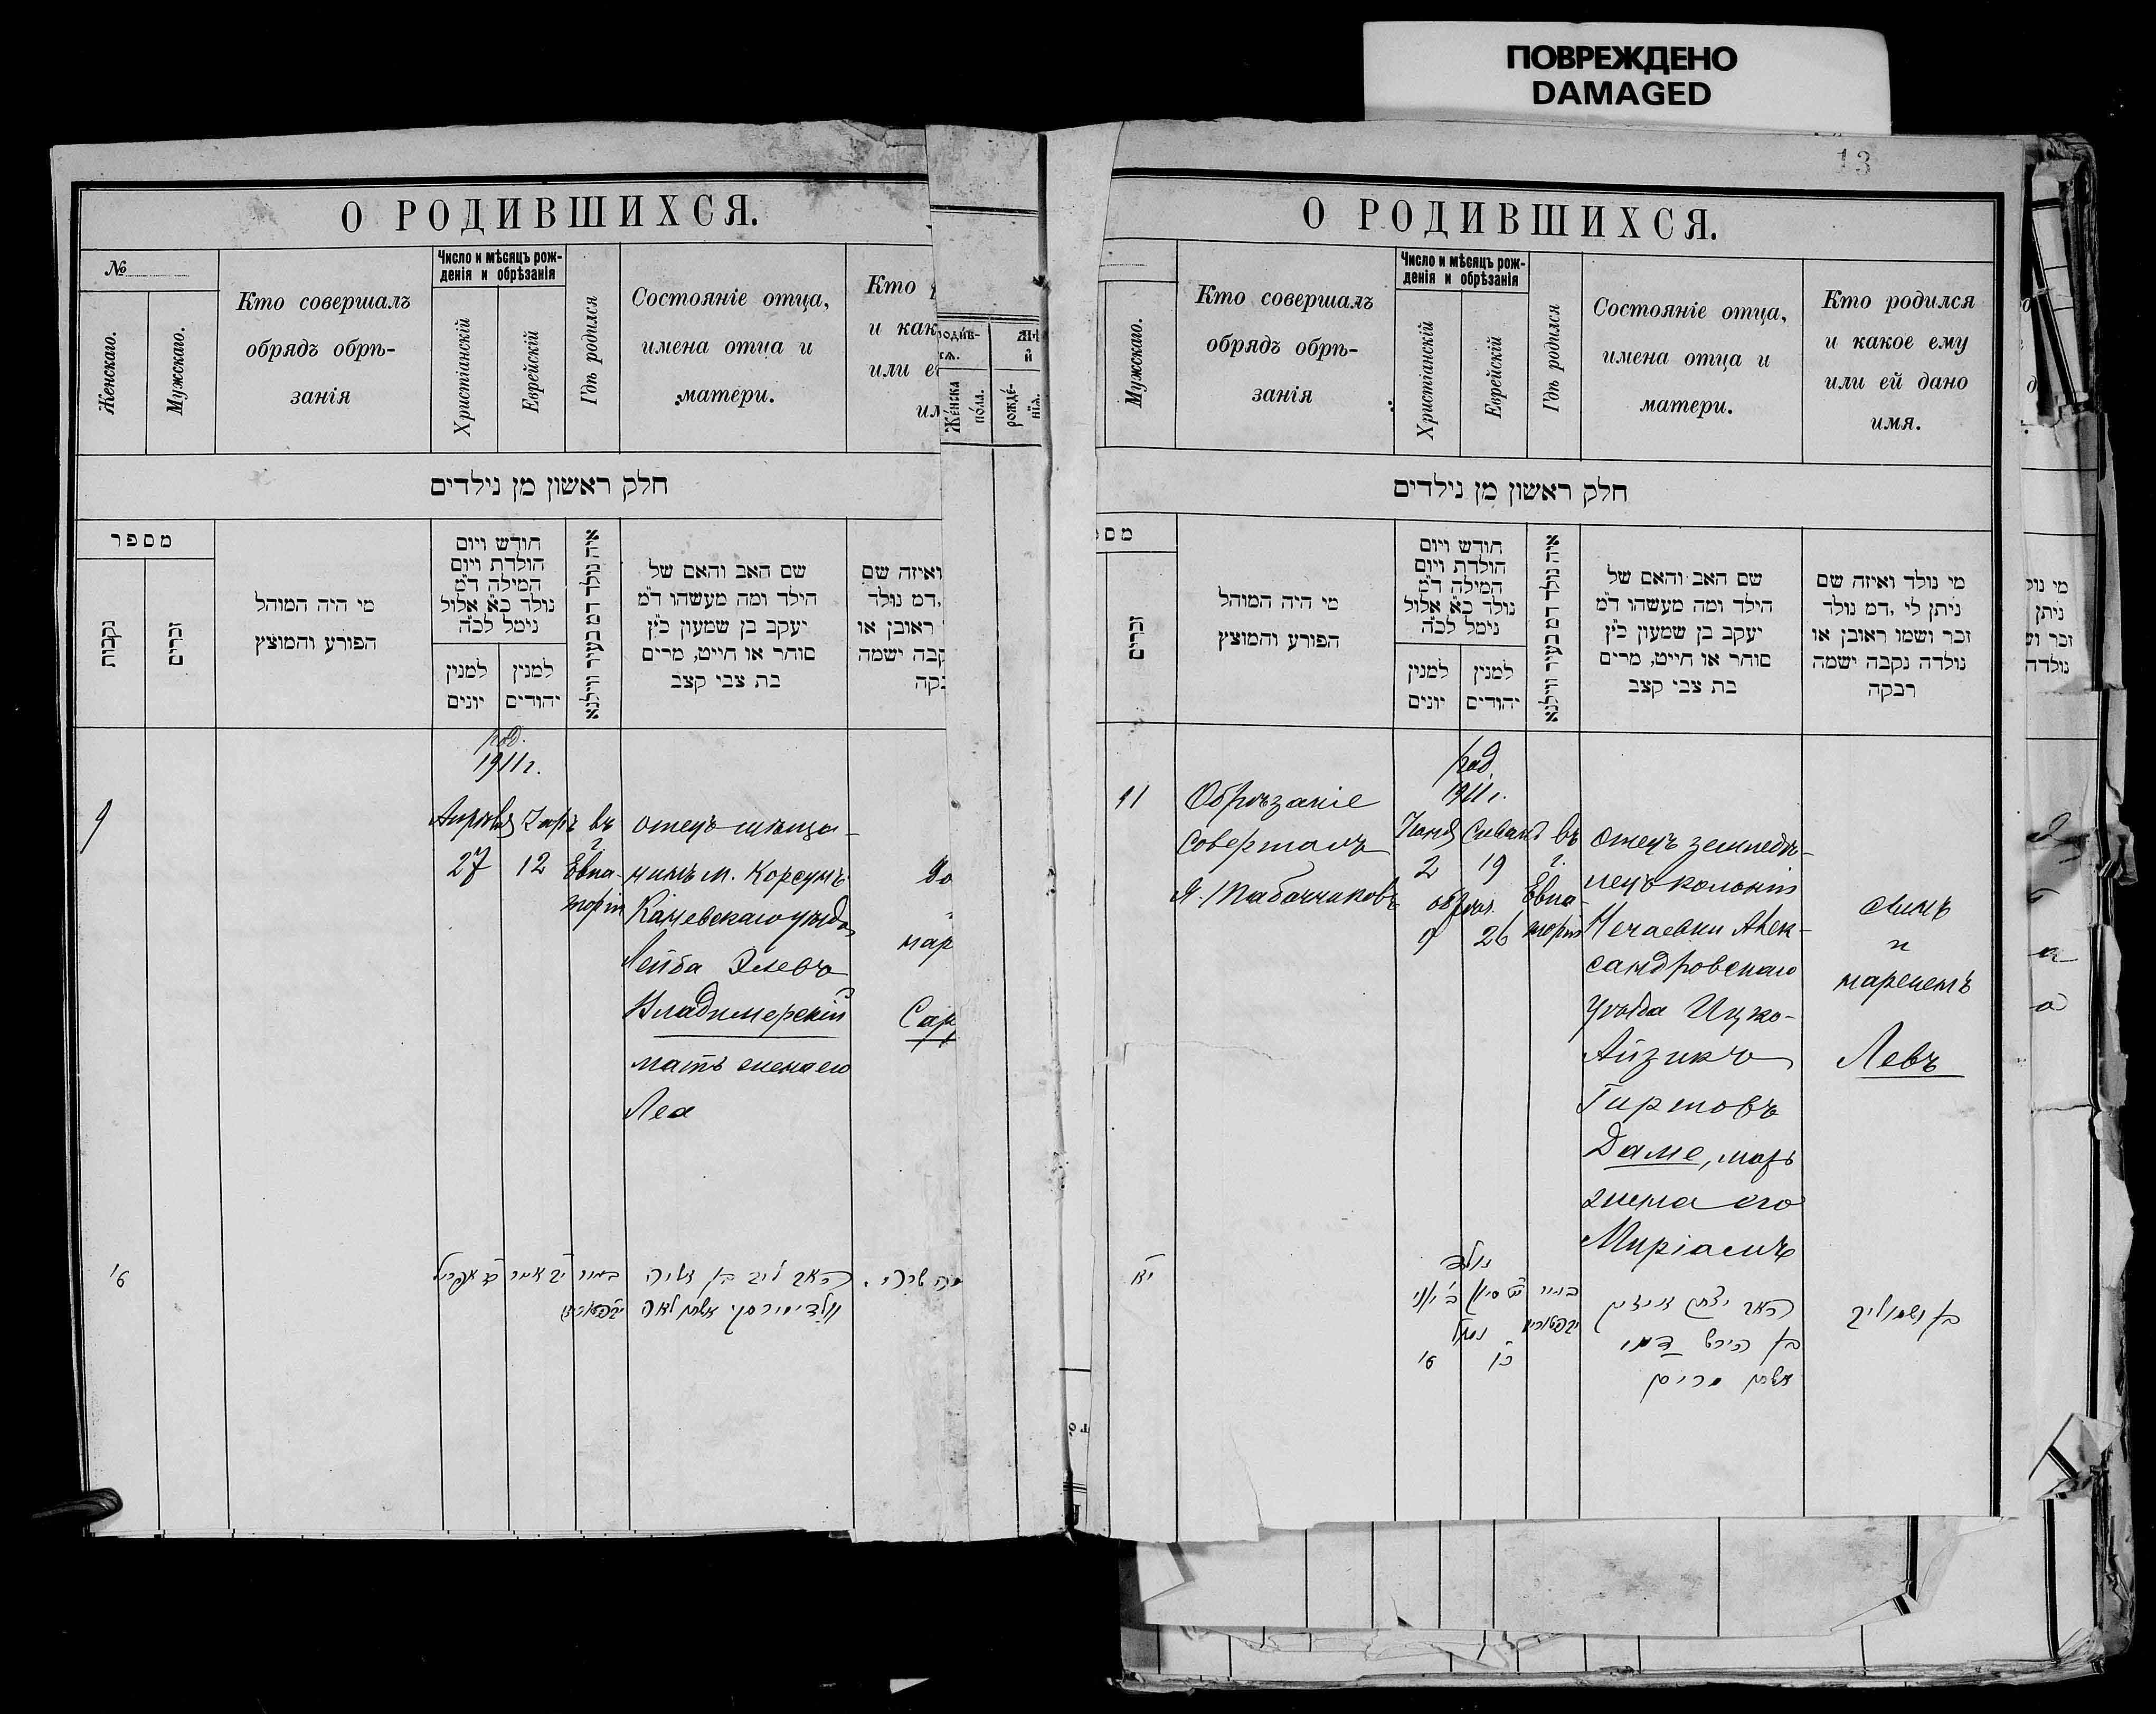 ПОВРЕЖДЕНО
DAMAGED
О РОДИВШИХСЯ.
№
Женскаго.
Мужскаго.
Кто совершалъ
обрядъ обрѣ-
занія
Число и мѣсяцъ рож-
денія и обрѣзанія
Христіанскій
Еврейскій
Гдѣ родился
Состояніе отца,
имена отца и
матери.
Кто
и как
или е
им
חלק ראשון מן נילדים
מספר
נקבות
זכרים
מי היה המוהל
הפורע והמוצץ
חודש ויום
הולדת ויום
המילה ד״מ
נולד כ״א אלול
נימל לכ״ה
למנין
יונים
למנין
יהודים
איה נולד דמ בעיר ווילנא
שם האב והאם של
הילד ומה מעשהו ד״מ
יעקב בן שמעון כ״ץ
סוחר או חייט, מרים
בת צבי קצב
ואיזה שם
דמ נולד,
ראובן או
קבה ישמה
בקה
род.
1911 г.
9
Апрѣля
27
12
въ
г.
Евпа-
торіи
отецъ мѣща-
нинъ м. Корсунъ
Каневскаго уѣзда
Лейба Элевъ
Владимерскій
мать жена его
Леа
до
нар
Сар
родив-
ся.
Женска
пола.
рожде-
нія.
13
О РОДИВШИХСЯ.
Мужскаго.
Кто совершалъ
обрядъ обрѣ-
занія
Число и мѣсяцъ рож-
денія и обрѣзанія
Христіанскій
Еврейскій
Гдѣ родился
Состояніе отца,
имена отца и
матери.
Кто родился
и какое ему
или ей дано
имя.
חלק ראשון מן נילדים
מספ
זכרים
מי היה המוהל
הפורע והמוצץ
חודש ויום
הולדת ויום
המילה ד״מ
נולד כ״א אלול
נימל לכ״ה
למנין
יונים
למנין
יהודים
איה נולד דמ בעיר ווילנא
שם האב והאם של
הילד ומה מעשהו ד״מ
יעקב בן שמעון כ״ץ
סוחר או חייט, מרים
בת צבי קצב
מי נולד ואיזה שם
ניתן לי, דמ נולד
זכר ושמו ראובן או
נולדה נקבה ישמה
רבקה
род.
1911 г.
11
Обрѣзаніе
совершалъ
Я. Табачниковъ
Іюня
2
9
Сиванъ
19
26
въ
г.
Евпа-
торіи
отецъ земледѣ-
лецъ колоніи
Нечаевки Алек-
сандровскаго
уѣзда Ицко-
Айзикъ
Гиршовъ
Даме, мать
жена его
Миріамъ
сынъ
и
нареченъ
Левъ
נולד
האב יצחק אייזיק
בן הירש דמי
אשתו מרים
בן ושמו ליב